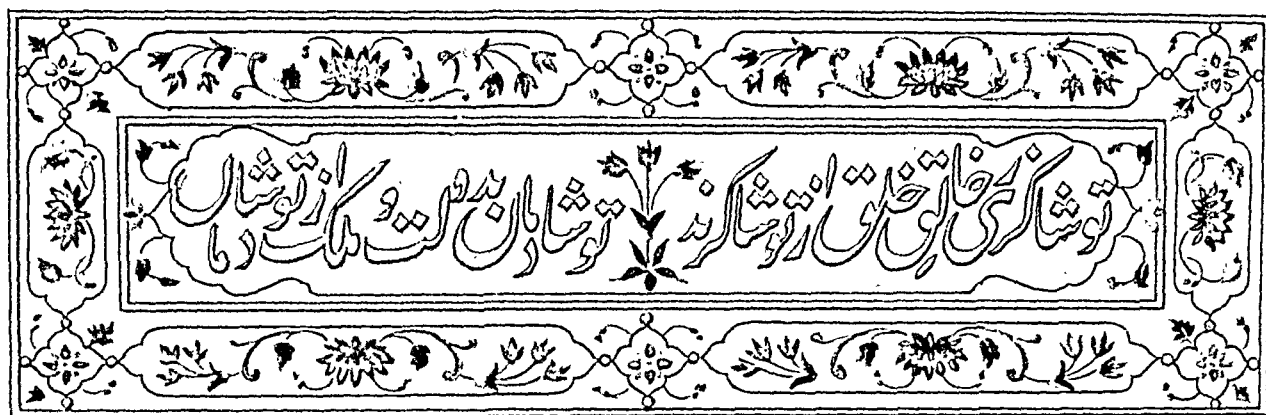 تو شاکری ز خالق خلق از تو شاکرند تو شادمان بدولت و ملک از تو شادمان